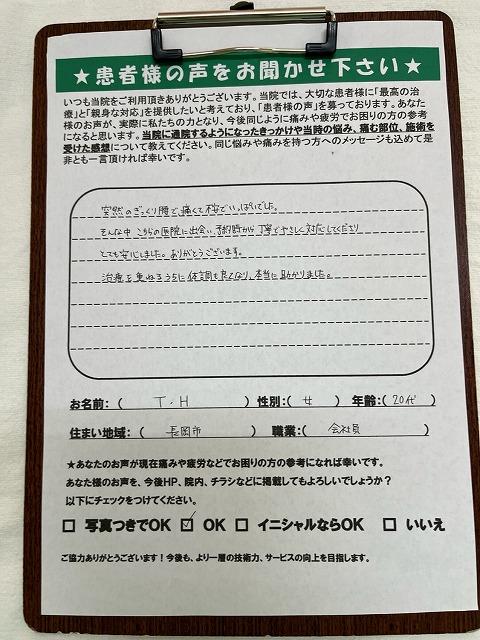 ★患者様の声をお聞かせ下さい★
いつも当院をご利用頂きありがとうございます。当院では、大切な患者様に「最高の治
療」と「親身な対応」を提供したいと考えており、「患者様の声」を募っております。あなた
様のお声が、実際に私たちの力となり、今後同じように痛みや疲労でお困りの方の参考
になると思います。当院に通院するようになったきっかけや当時の悩み、痛む部位、施術を
受けた感想について教えてください。同じ悩みや痛みを持つ方へのメッセージも込めて是
非とも一言頂ければ幸いです。
突然のぎっくり腰で痛くて不安でいっぱいでした。
そんな中こちらの医院に出会い、予約時から丁寧でやさしく対応してくださり
とても安心しました。ありがとうございます。
治療を重ねるうちに体調も良くなり、本当に助かりました。
お名前:( T.H ) 性別:( 女 ) 年齢:( 20代 )
住まい地域:( 長岡市 ) 職業:( 会社員 )
★あなたのお声が現在痛みや疲労などでお困りの方の参考になれば幸いです。
あなた様のお声を、今後HP、院内、チラシなどに掲載してもよろしいでしょうか?
以下にチェックをつけてください。
□ 写真つきでOK ☑ OK □ イニシャルならOK □ いいえ
ご協力ありがとうございます!今後も、より一層の技術力、サービスの向上を目指します。